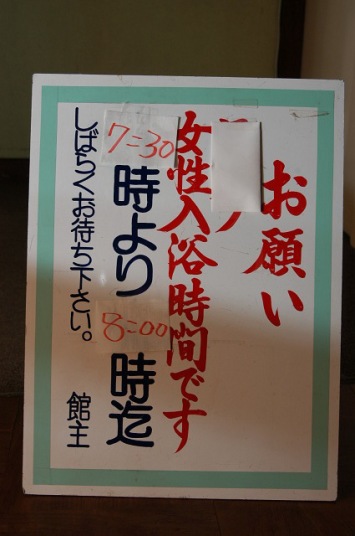 お願い
女性入浴時間です
7=30時より
8=00時迄
しばらくお待ち下さい。
館主